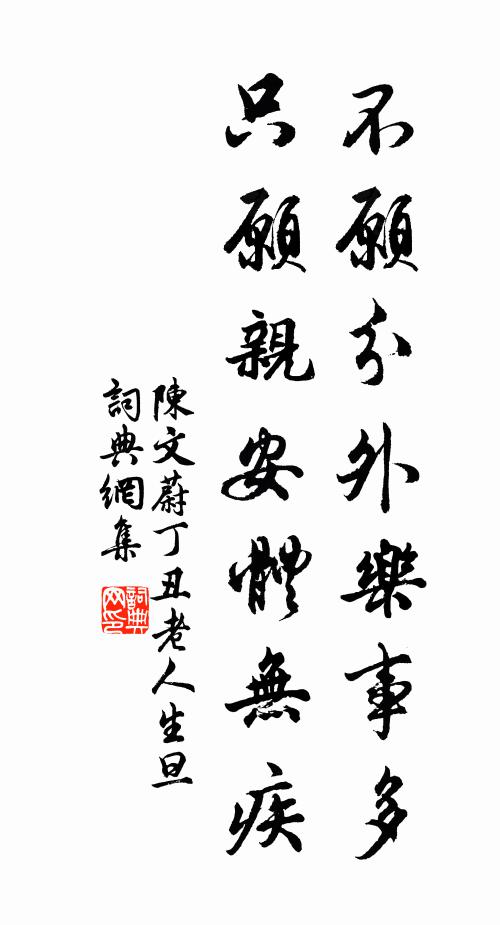 不願分外樂事多
只願親安體無疾
陳文蔚丁丑老人生旦
詞典網集
詞典网印